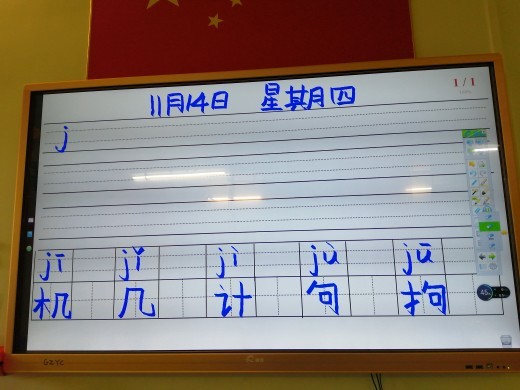 11月14日 星期四
1/1
j
jī jǐ jì jù jū
机 几 计 句 拘